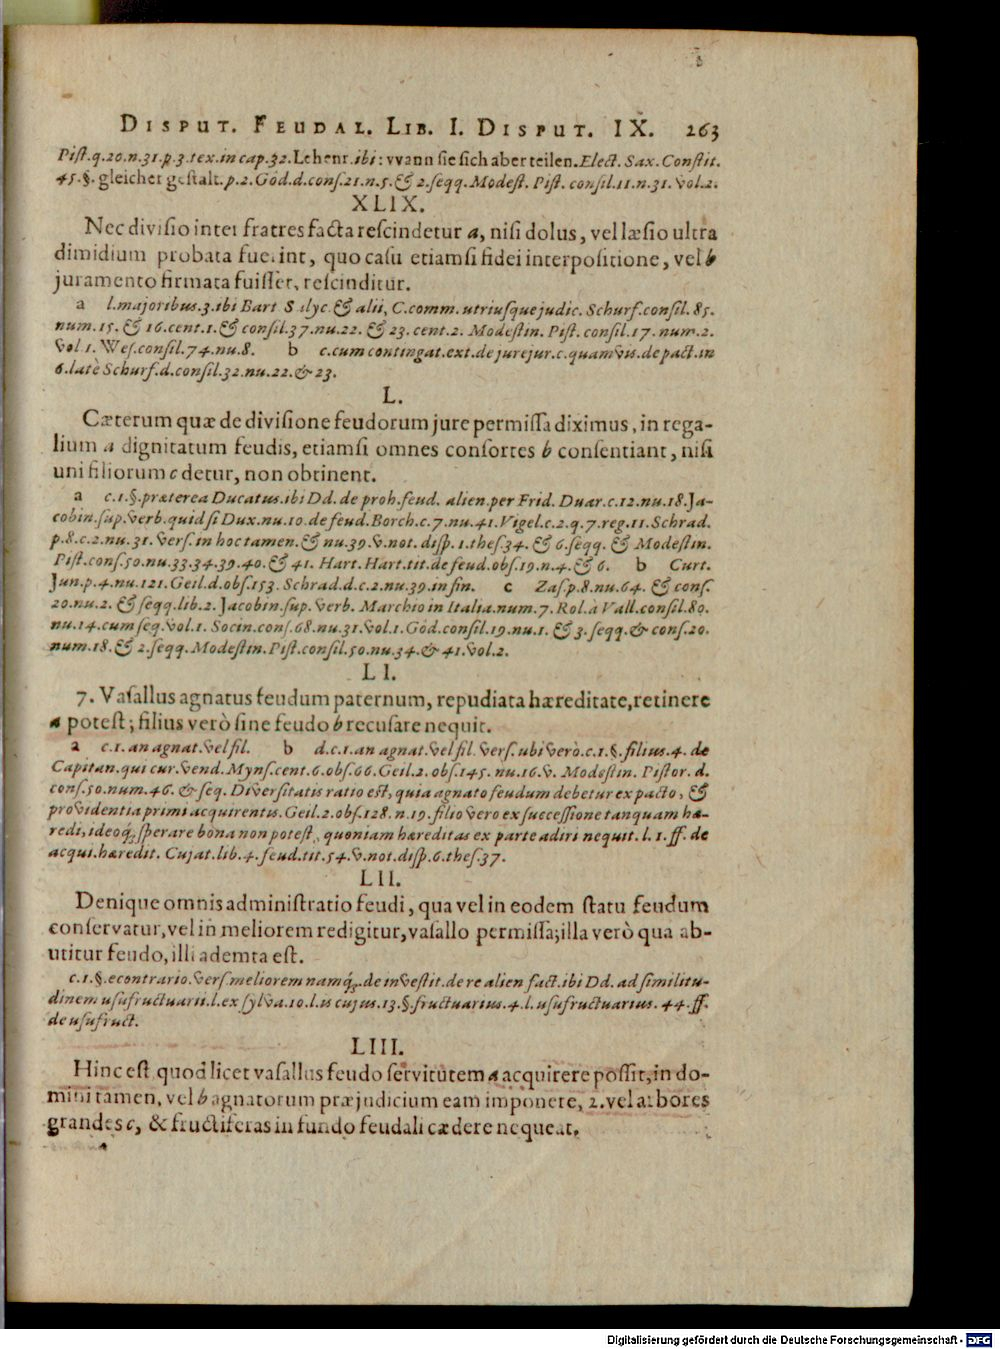 DISPUT. FEUDAL. LIB. I. DISPUT. IX. 263
Piſt.q.20.n.31.p.3.tex.in cap.32.Lehenr.ibi: vvann ſie ſich aber teilen.Elect. Sax. Conſtit.
45.§. gleicher geſtalt.p.2. God.d.conſ.21.n.5.& 2.ſeqq. Modeſt. Piſt. conſil.11.n.31. vol.2.
XLIX.
Nec diviſio inter fratres facta reſcindetur a, niſi dolus, vel læſio ultra
dimidium probata fuerint, quo caſu etiamſi fidei interpoſitione, vel b
juramento firmata fuiſſet, reſcinditur.
a l.majoribus.3.ibi Bart Salyc & alii, C.comm. utriuſque judic. Schurf.conſil.85.
num.15. & 16.cent.1.& conſil.37.nu.22. & 23. cent.2. Modeſtin. Piſt. conſil.17. num.2.
vol 1. Weſ.conſil.74.nu.8. b c.cum contingat.ext.de jurejur.c.quamvis.de pact.in
6.latè Schurf.d.conſil.32.nu.22.& 23.
L.
Cæterum quæ de diviſione feudorum jure permiſſa diximus, in rega-
lium a dignitatum feudis, etiamſi omnes conſortes b conſentiant, niſi
uni filiorum c detur, non obtinent.
a c.1.§.præterea Ducatus.ibi Dd. de proh.feud. alien.per Frid. Duar.c.12.nu.18.Ja-
cobin.ſup.verb.quid ſi Dux.nu.10.de feud.Borch.c.7.nu.41.Vigel.c.2.q.7.reg.11.Schrad.
p.8.c.2.nu.31. verſ.in hoc tamen.& nu.39.v.not. diſp. 1.theſ.34. & 6.ſeqq. & Modeſtin.
Piſt.conſ.50.nu.33.34.39.40.& 41. Hart. Hart.tit.de feud.obſ.19.n.4.& 6. b Curt.
Jun.p.4.nu.121.Geil.d.obſ.153. Schrad.d.c.2.nu.39.in fin. c Zaſ.p.8.nu.64. & conſ.
20.nu.2. & ſeqq.lib.2. Jacobin.ſup. verb. Marchio in Italia.num.7. Rol.à Vall.conſil.80.
nu.14.cum ſeq.vol.1. Socin.conſ.68.nu.31.vol.1.God.conſil.19.nu.1. & 3.ſeqq.& conſ.20.
num.18.& 2.ſeqq.Modeſtin.Piſt.conſil.50.nu.34.& 41.vol.2.
LI.
7. Vaſallus agnatus feudum paternum, repudiata hæreditate, retinere
a poteſt; filius verò ſine feudo b recuſare nequit.
a c.1. an agnat.vel fil. b d.c.1.an agnat.vel fil. verſ.ubi verò.c.1.§.filius.4. de
Capitan.qui cur.vend.Mynſ.cent.6.obſ.66.Geil.2.obſ.145.nu.16.v. Modeſtin. Piſtor. d.
conſ.50.num.46. & ſeq. Diverſitatis ratio eſt, quia agnato feudum debetur ex pacto, &
providentia primi acquirentis. Geil.2.obſ.128.n.19.filio vero ex ſucceſſione tanquam hæ-
redi, ideoq; ſperare bona non poteſt, quoniam hæreditas ex parte adiri nequit. l. 1. ff. de
acqui.hæredit. Cujat.lib.4.feud.tit.54.v.not.diſp.6.theſ.37.
LII.
Denique omnis adminiſtratio feudi, qua vel in eodem ſtatu feudum
conſervatur, vel in meliorem redigitur, vaſallo permiſſa; illa verò qua ab-
utitur feudo, illi ademta eſt.
c.1.§.econtrario.verſ.meliorem namq;.de inveſtit.de re alien fact.ibi Dd. ad ſimilitu-
dinem uſufructuarii.l.ex ſylva.10.l.is cujus.13.§.fructuarius.4.l.uſufructuarius.44.ff.
de uſufruct.
LIII.
Hinc eſt quod licet vaſallus feudo ſervitutem a acquirere poſſit, in do-
mini tamen, vel b agnatorum præjudicium eam imponere, 2. vel arbores
grandes c, & fructiferas in fundo feudali cædere nequeat.
a
Digitalisierung gefördert durch die Deutsche Forschungsgemeinschaft - DFG